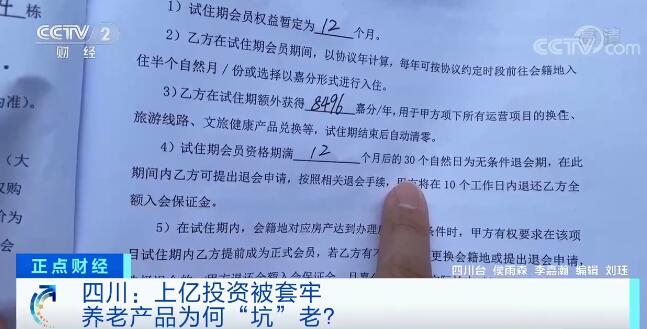 CCTV 2
财经
CCTV.com
栋
1）试住期会员权益暂定为12个月。
2）乙方在试住期会员期间，以协议年计算，每年可按协议约定时段前往会籍地入
住半个自然月/份或选择以嘉分形式进行入住。
3）乙方在试住期额外获得8496嘉分/年，用于甲方项下所有运营项目的换住、
为准）。
旅游线路、文旅健康产品兑换等，试住期结束后自动清零。
4）试住期会员资格期满12个月后的30个自然日为无条件退会期，在此
（大
期间内乙方可提出退会申请，按照相关退会手续，甲方将在10个工作日内退还乙方全
额入会保证金。
5）在试住期内，会籍地对应房产达到办理
条件时，甲方有权要求在该项
目试住期内乙方提前成为正式会员，若乙方有
更换会籍地或提出退会申请，
正点财经
四川台 侯雨森 李嘉瀚 编辑 刘珏
四川：上亿投资被套牢
养老产品为何“坑”老？